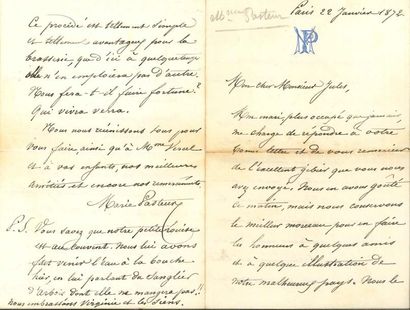 Mme Pasteur
Paris 22 Janvier 1872
MP
Mon cher Monsieur Jules,
Mon mari, plus occupé que jamais,
me charge de répondre à votre
bonne lettre et de vous remercier
de l'excellent gibier que vous nous
avez envoyé. Nous en avons goûté
ce matin, mais nous conservons
le meilleur morceau pour en faire
les honneurs à quelques amis
et à quelque illustration de
notre malheureux pays. Nous le
Ce procédé est tellement simple
et tellement avantageux pour la
brasserie, que d'ici à quelque temps
elle n'en emploiera pas d'autre.
Nous fera-t-il faire fortune?
Qui vivra verra.
Nous nous réunissons tous pour
vous faire, ainsi qu'à Mme
et à vos enfants, nos meilleures
amitiés et encore nos remerciments.
Marie Pasteur
P.S. Vous savez que notre petite Louise
est au couvent. Nous lui avons
fait venir l'eau à la bouche
hier, en lui parlant du sanglier
d'Arbois dont elle ne mangera pas!!
Nous embrassons Virginie et les siens.